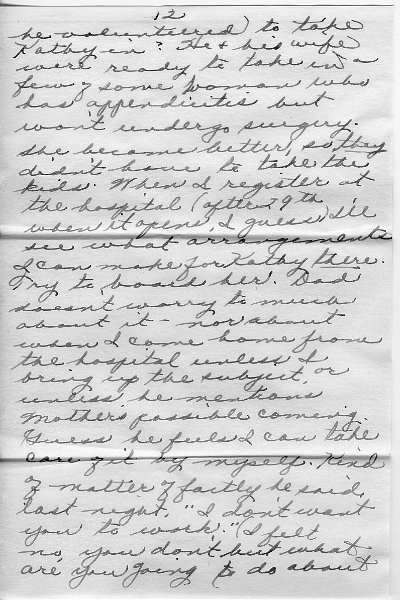 12
he volunteered) to take
Kathy in? He & his wife
were ready to take in a
few of some woman who
has appendicites but
won't undergo surgery.
She became better, so they
didn't have to take the
kids. When I register at
the hospital (after 9th
when it opens, I guess) I'll
see what arrangements
I can make for Kathy there.
Try to board her. Dad
doesnt worry to much
about it - nor about
when I come home from
the hospital unless I
bring up the subject, or
unless he mentions
Mothers possible coming.
Guess he feels I can take
care of it by myself. Kind
of matter of factly he said,
last night, "I don't want
you to work." (I felt
no, you don't, but what
are you going to do about